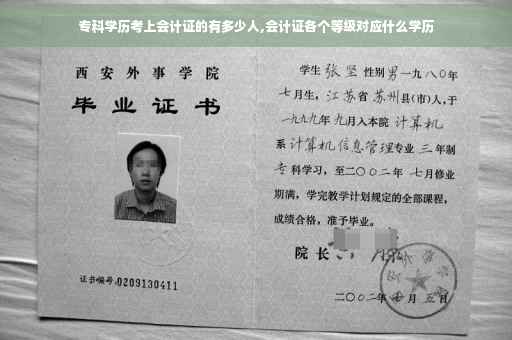 专科学历考上会计证的有多少人,会计证各个等级对应什么学历
西安外事学院
毕业证书
证书编号:0209130411
学生 张坚 性别 男 一九八〇年
七月生, 江苏省 苏州县(市)人, 于
一九九九年 九月入本院 计算机
系 计算机信息管理专业 三 年制
专科学习, 至二〇〇二年 七月修业
期满, 学完教学计划规定的全部课程,
成绩合格, 准予毕业。
院长
二〇〇二年 月 五日